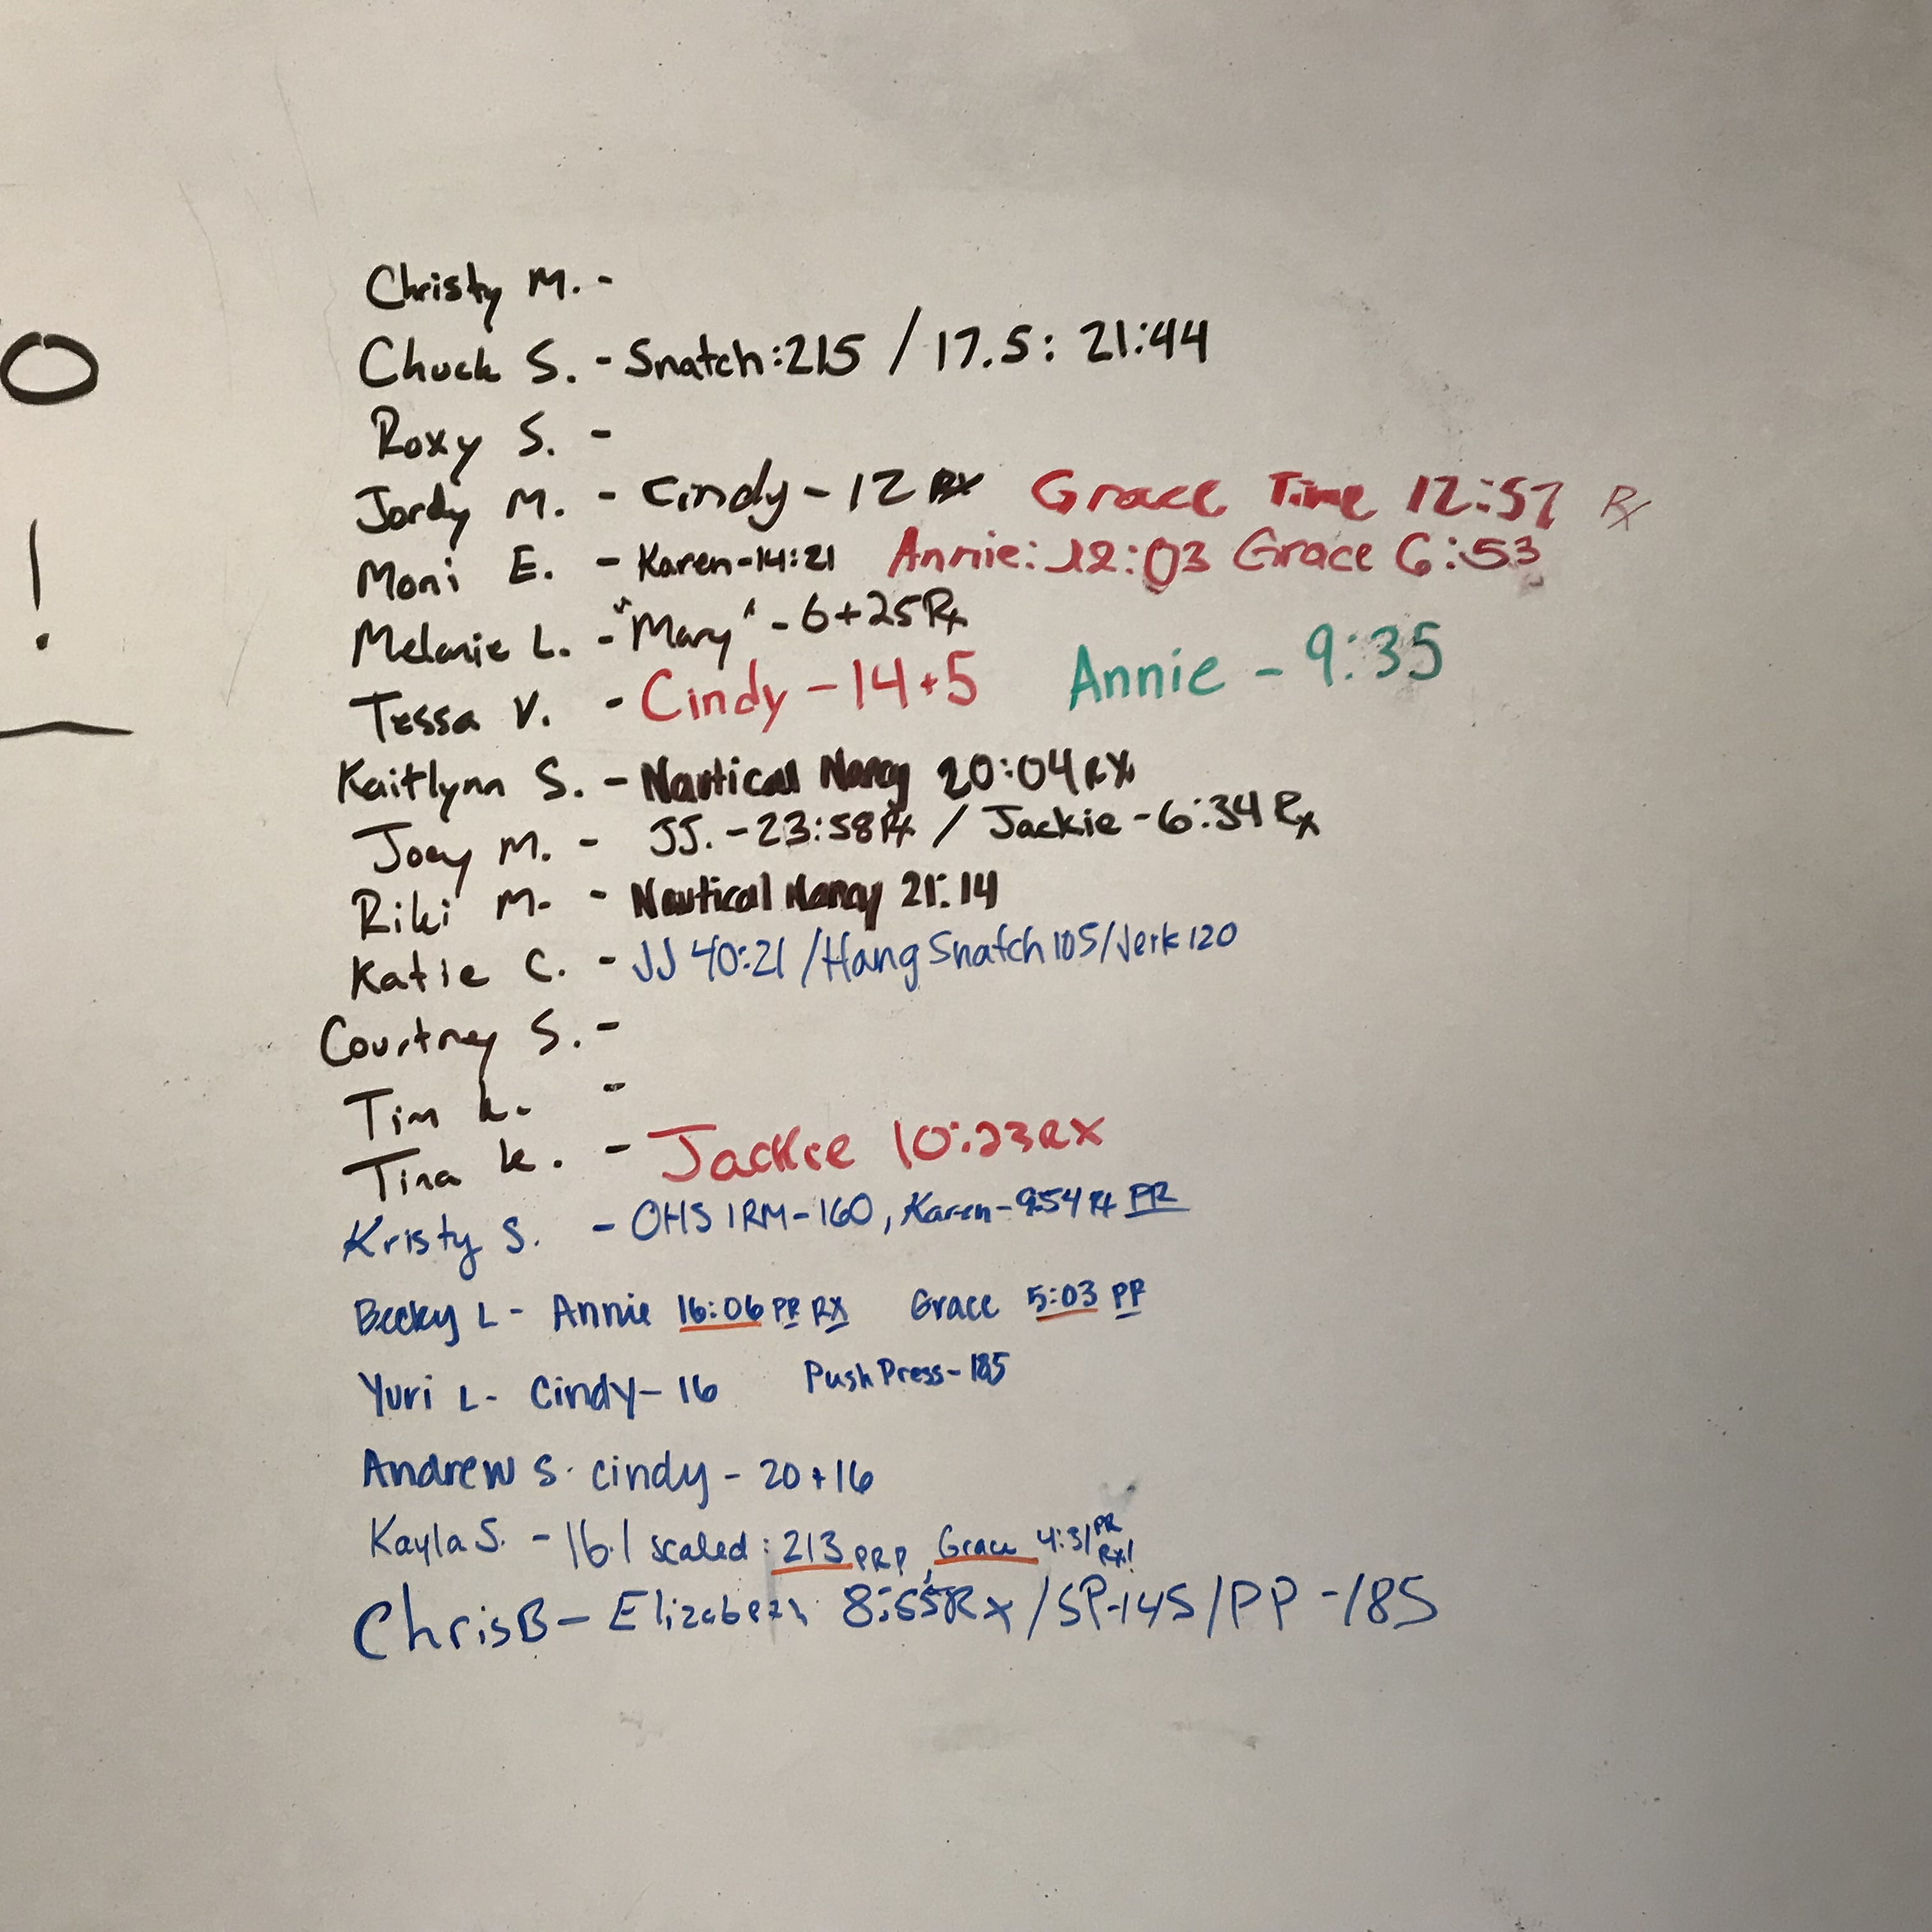 O
!
Christy M. -
Chuck S. - Snatch: 215 / 17.5: 21:44
Roxy S. -
Jordy M. - Cindy - 12 RX Grace Time 12:57 Rx
Moni E. - Karen - 14:21 Annie: 12:03 Grace 6:53
Melanie L. - "Mary" - 6+25 Rx
Tessa V. - Cindy - 14+5 Annie - 9:35
Kaitlynn S. - Nautical Nancy 20:04 RX
Joey M. - JJ. - 23:58 Rx / Jackie - 6:34 Rx
Riki M. - Nautical Nancy 21:14
Katie C. - JJ 40:21 / Hang Snatch 105 / Jerk 120
Courtney S. -
Tim K. -
Tina K. - Jackie 10:23 RX
Kristy S. - OHS 1RM - 160, Karen - 9:54 Rx PR
Becky L - Annie 16:06 PR RX Grace 5:03 PR
Yuri L - Cindy - 16 Push Press - 185
Andrew S. cindy - 20+16
Kayla S. - 16.1 scaled: 213 PRP, Grace 4:31 PR Rx!
Chris B - Elizabeth 8:55 Rx / SP-145 / PP - 185